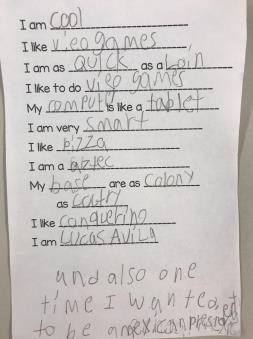 I am cool
I like vieogames
I am as quick as a Loin
I like to do vieo games
My computy is like a tablet
I am very smart
I like pizza
I am a aztec
My base are as colony
as coutry
I like conquering
I am LUCAS AVILA
und also one
time I wanted
to be a mexican president